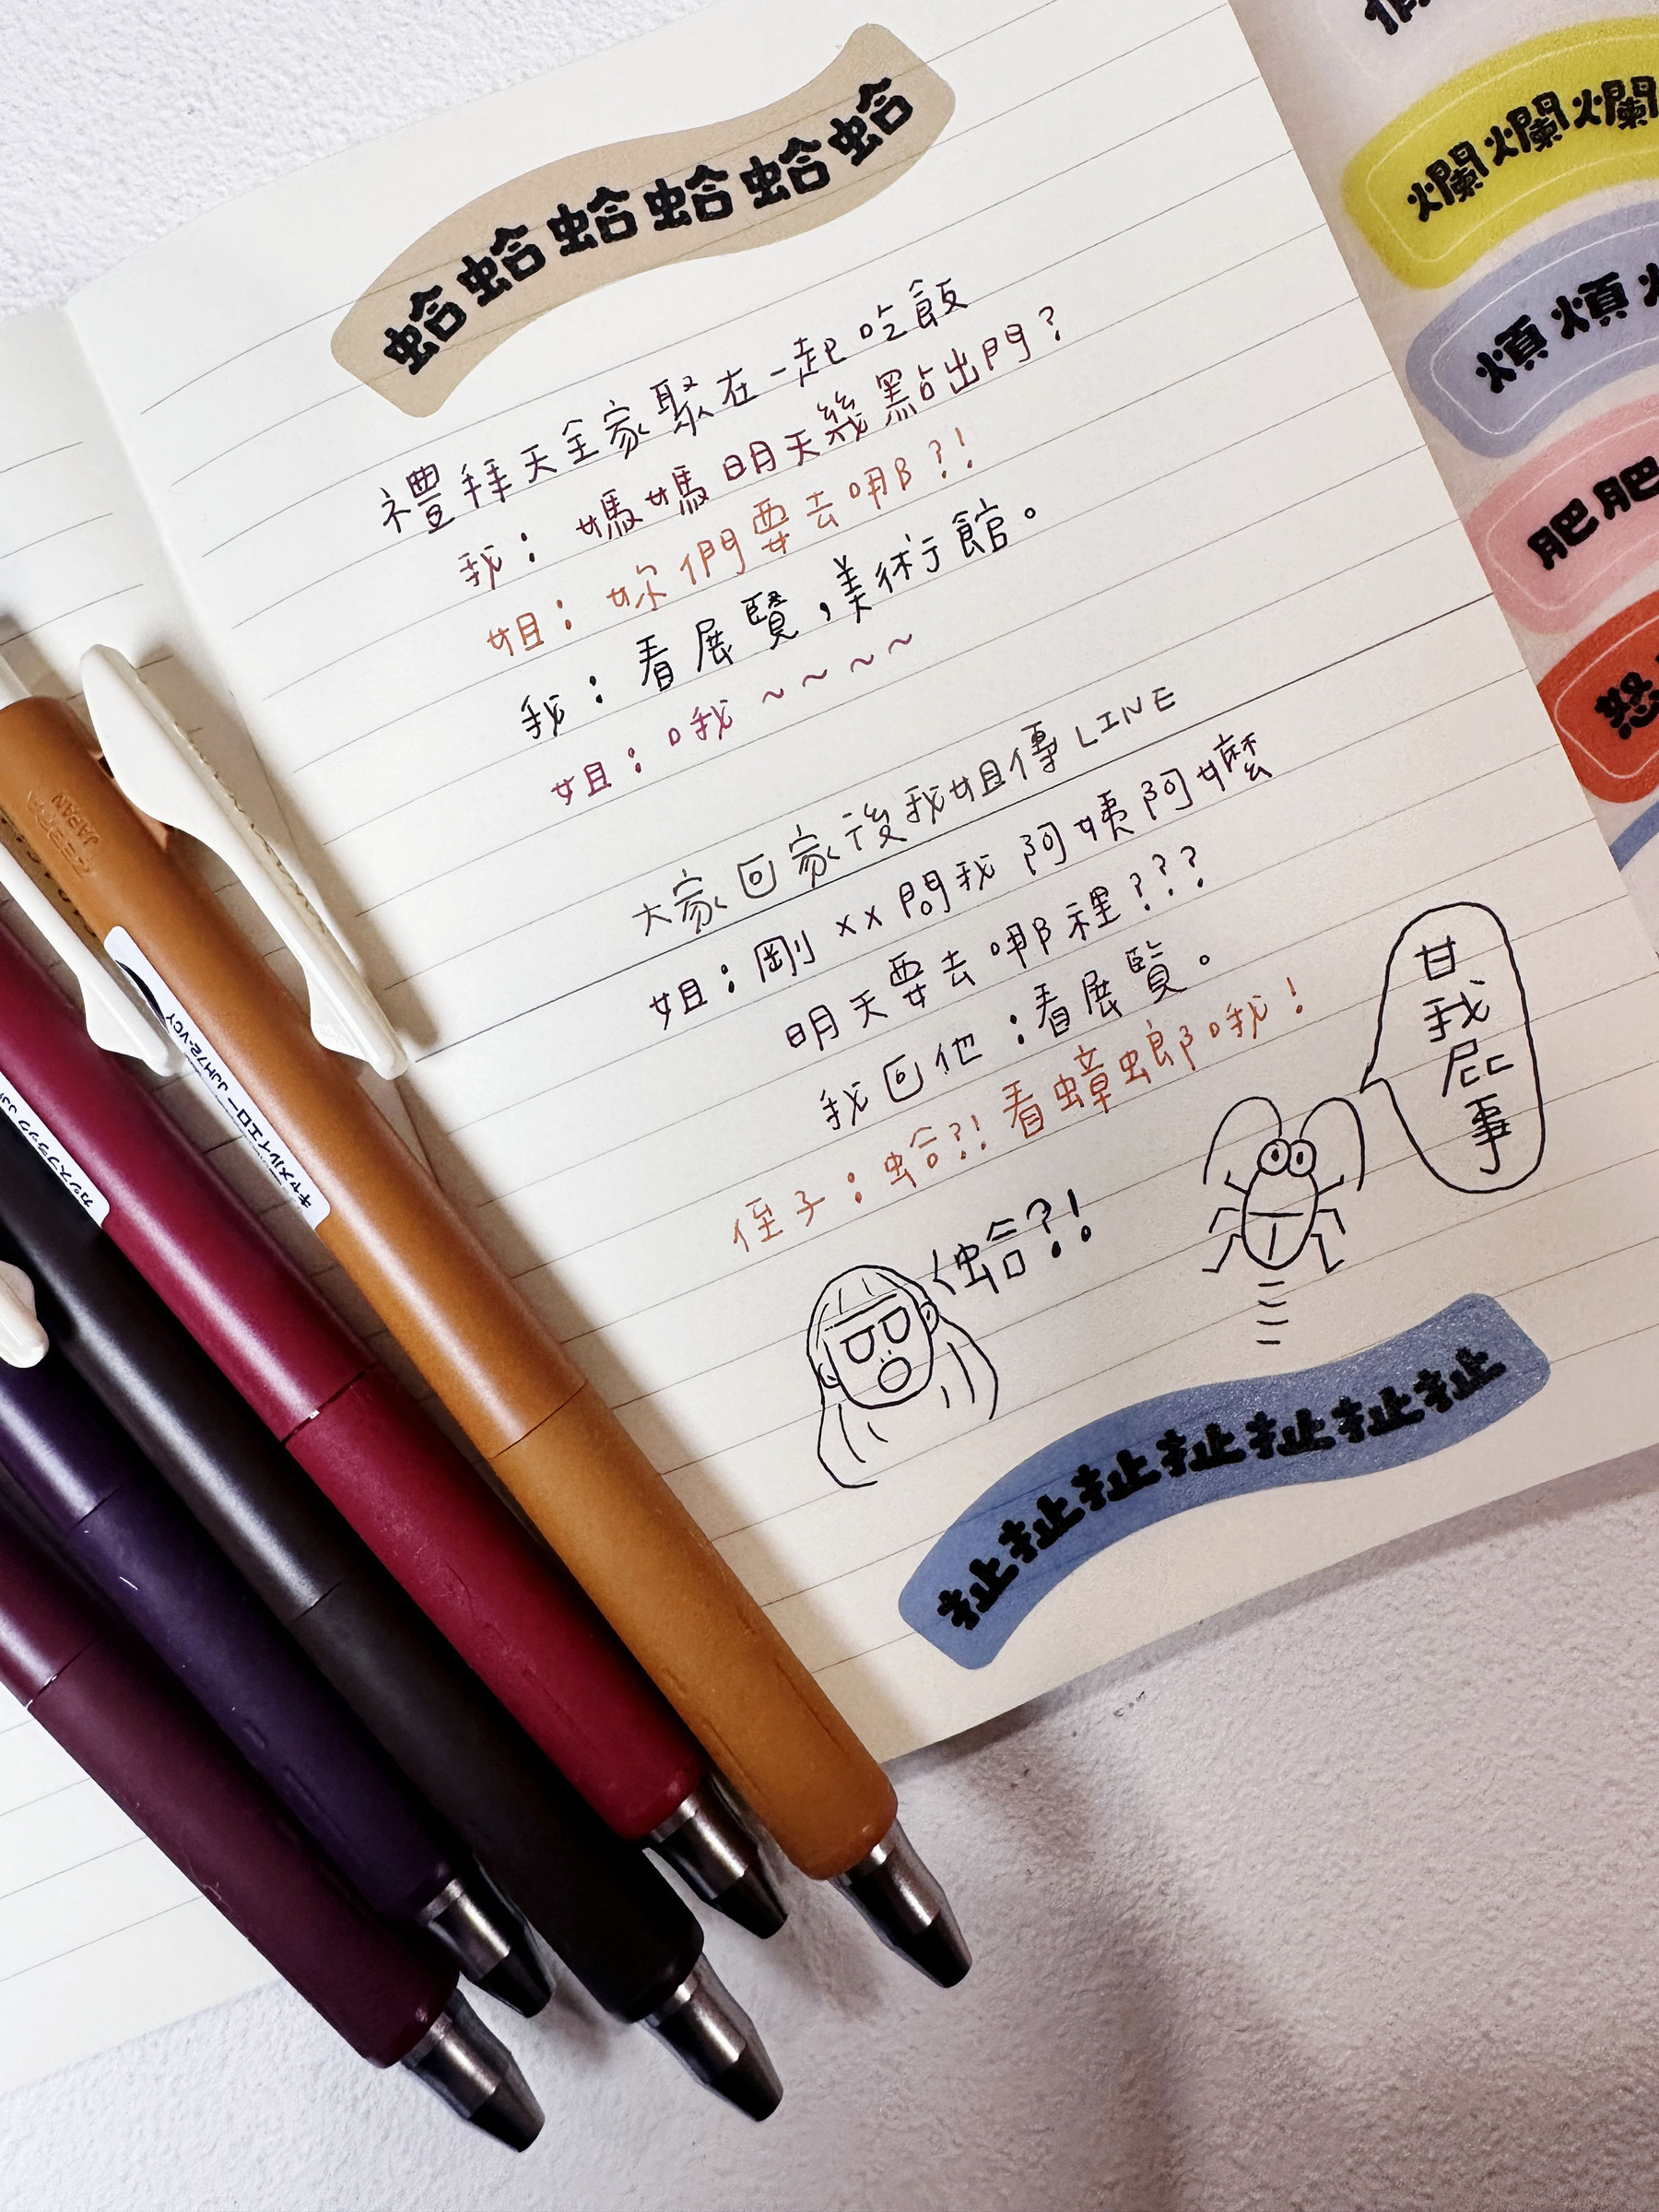 蛤蛤蛤蛤蛤蛤
禮拜天全家聚在一起吃飯
我：媽媽明天幾點出門？
姐：妳們要去哪？！
我：看展覽，美術館。
姐：哦～～～～
大家回家後我姐傳LINE
姐：剛××問我阿姨阿嬤
明天要去哪裡？？？
我回他：看展覽。
侄子：蛤？！看蟑螂哦！
甘我屁事
蛤？！
扯扯扯扯扯扯
爛爛爛
煩煩
肥肥
怒
JAPAN
キャメルイエロー JJH72-VCY
カシスブラック